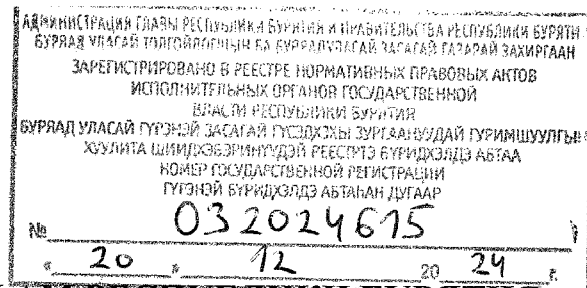 АДМИНИСТРАЦИЯ ГЛАВЫ РЕСПУБЛИКИ БУРЯТИЯ И ПРАВИТЕЛЬСТВА РЕСПУБЛИКИ БУРЯТИ
БУРЯАД УЛАСАЙ ТОЛГОЙЛОГШЫН БА БУРЯАД УЛАСАЙ ЗАСАГАЙ ГАЗАРАЙ ЗАХИРГААН
ЗАРЕГИСТРИРОВАНО В РЕЕСТРЕ НОРМАТИВНЫХ ПРАВОВЫХ АКТОВ
ИСПОЛНИТЕЛЬНЫХ ОРГАНОВ ГОСУДАРСТВЕННОЙ
ВЛАСТИ РЕСПУБЛИКИ БУРЯТИЯ
БУРЯАД УЛАСАЙ ГҮРЭНЭЙ ЗАСАГАЙ ГҮЙСЭДХЭХЫ ЗУРГААНУУДАЙ ГУРИМШУУЛГЫН
ХУУЛИТА ШИИДХЭБЭРИНҮҮДЭЙ РЕЕСТРТЭ БҮРИДХЭЛДЭ АБТАА
НОМЕР ГОСУДАРСТВЕННОЙ РЕГИСТРАЦИИ
ГҮРЭНЭЙ БҮРИДХЭЛДЭ АБТАҺАН ДУГААР
№ 032024615
« 20 » 12 20 24 г.